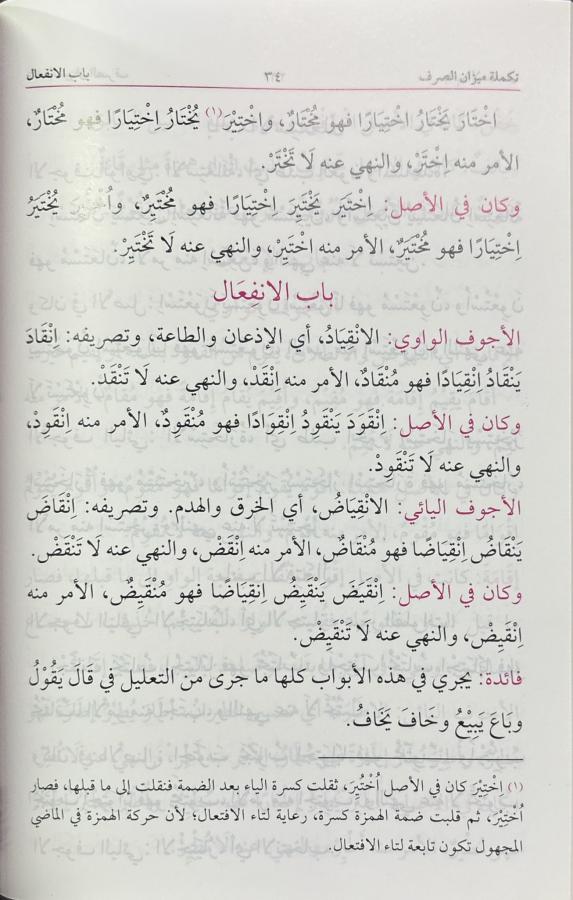 تكملة ميزان الصرف ٣٤ باب الانفعال
اخْتَارَ يَخْتَارُ اخْتِيَارًا فهو مُخْتَارٌ، واخْتِيْرَ(١) يُخْتَارُ اِخْتِيَارًا فهو مُخْتَارٌ،
الأمر منه اِخْتَرْ، والنهي عنه لَا تَخْتَرْ.
وكان في الأصل: اِخْتَيَرَ يَخْتَيِرُ اِخْتِيَارًا فهو مُخْتَيِرٌ، واُخْتُيِرَ يُخْتَيَرُ
اِخْتِيَارًا فهو مُخْتَيَرٌ، الأمر منه اخْتَيِرْ، والنهي عنه لَا تَخْتَيِرْ.
باب الانفعَال
الأجوف الواوي: الانْقِيَادُ، أي الإذعان والطاعة، وتصريفه: اِنْقَادَ
يَنْقَادُ اِنْقِيَادًا فهو مُنْقَادٌ، الأمر منه اِنْقَدْ، والنهي عنه لَا تَنْقَدْ.
وكان في الأصل: اِنْقَوَدَ يَنْقَوِدُ اِنْقِوَادًا فهو مُنْقَوِدٌ، الأمر منه اِنْقَوِدْ،
والنهي عنه لَا تَنْقَوِدْ.
الأجوف اليائي: الانْقِيَاضُ، أي الخرق والهدم. وتصريفه: اِنْقَاضَ
يَنْقَاضُ اِنْقِيَاضًا فهو مُنْقَاضٌ، الأمر منه اِنْقَضْ، والنهي عنه لَا تَنْقَضْ.
وكان في الأصل: اِنْقَيَضَ يَنْقَيِضُ اِنقِيَاضًا فهو مُنْقَيِضٌ، الأمر منه
اِنْقَيِضْ، والنهي عنه لَا تَنْقَيِضْ.
فائدة: يجري في هذه الأبواب كلها ما جرى من التعليل في قَالَ يَقُوْلُ
وبَاعَ يَبِيْعُ وخَافَ يَخَافُ.
(١) اِخْتِيْرَ كان في الأصل اُخْتُيِرَ، ثقلت كسرة الياء بعد الضمة فنقلت إلى ما قبلها، فصار
اُخْتِيْرَ، ثم قلبت ضمة الهمزة كسرة، رعاية لتاء الافتعال؛ لأن حركة الهمزة في الماضي
المجهول تكون تابعة لتاء الافتعال.